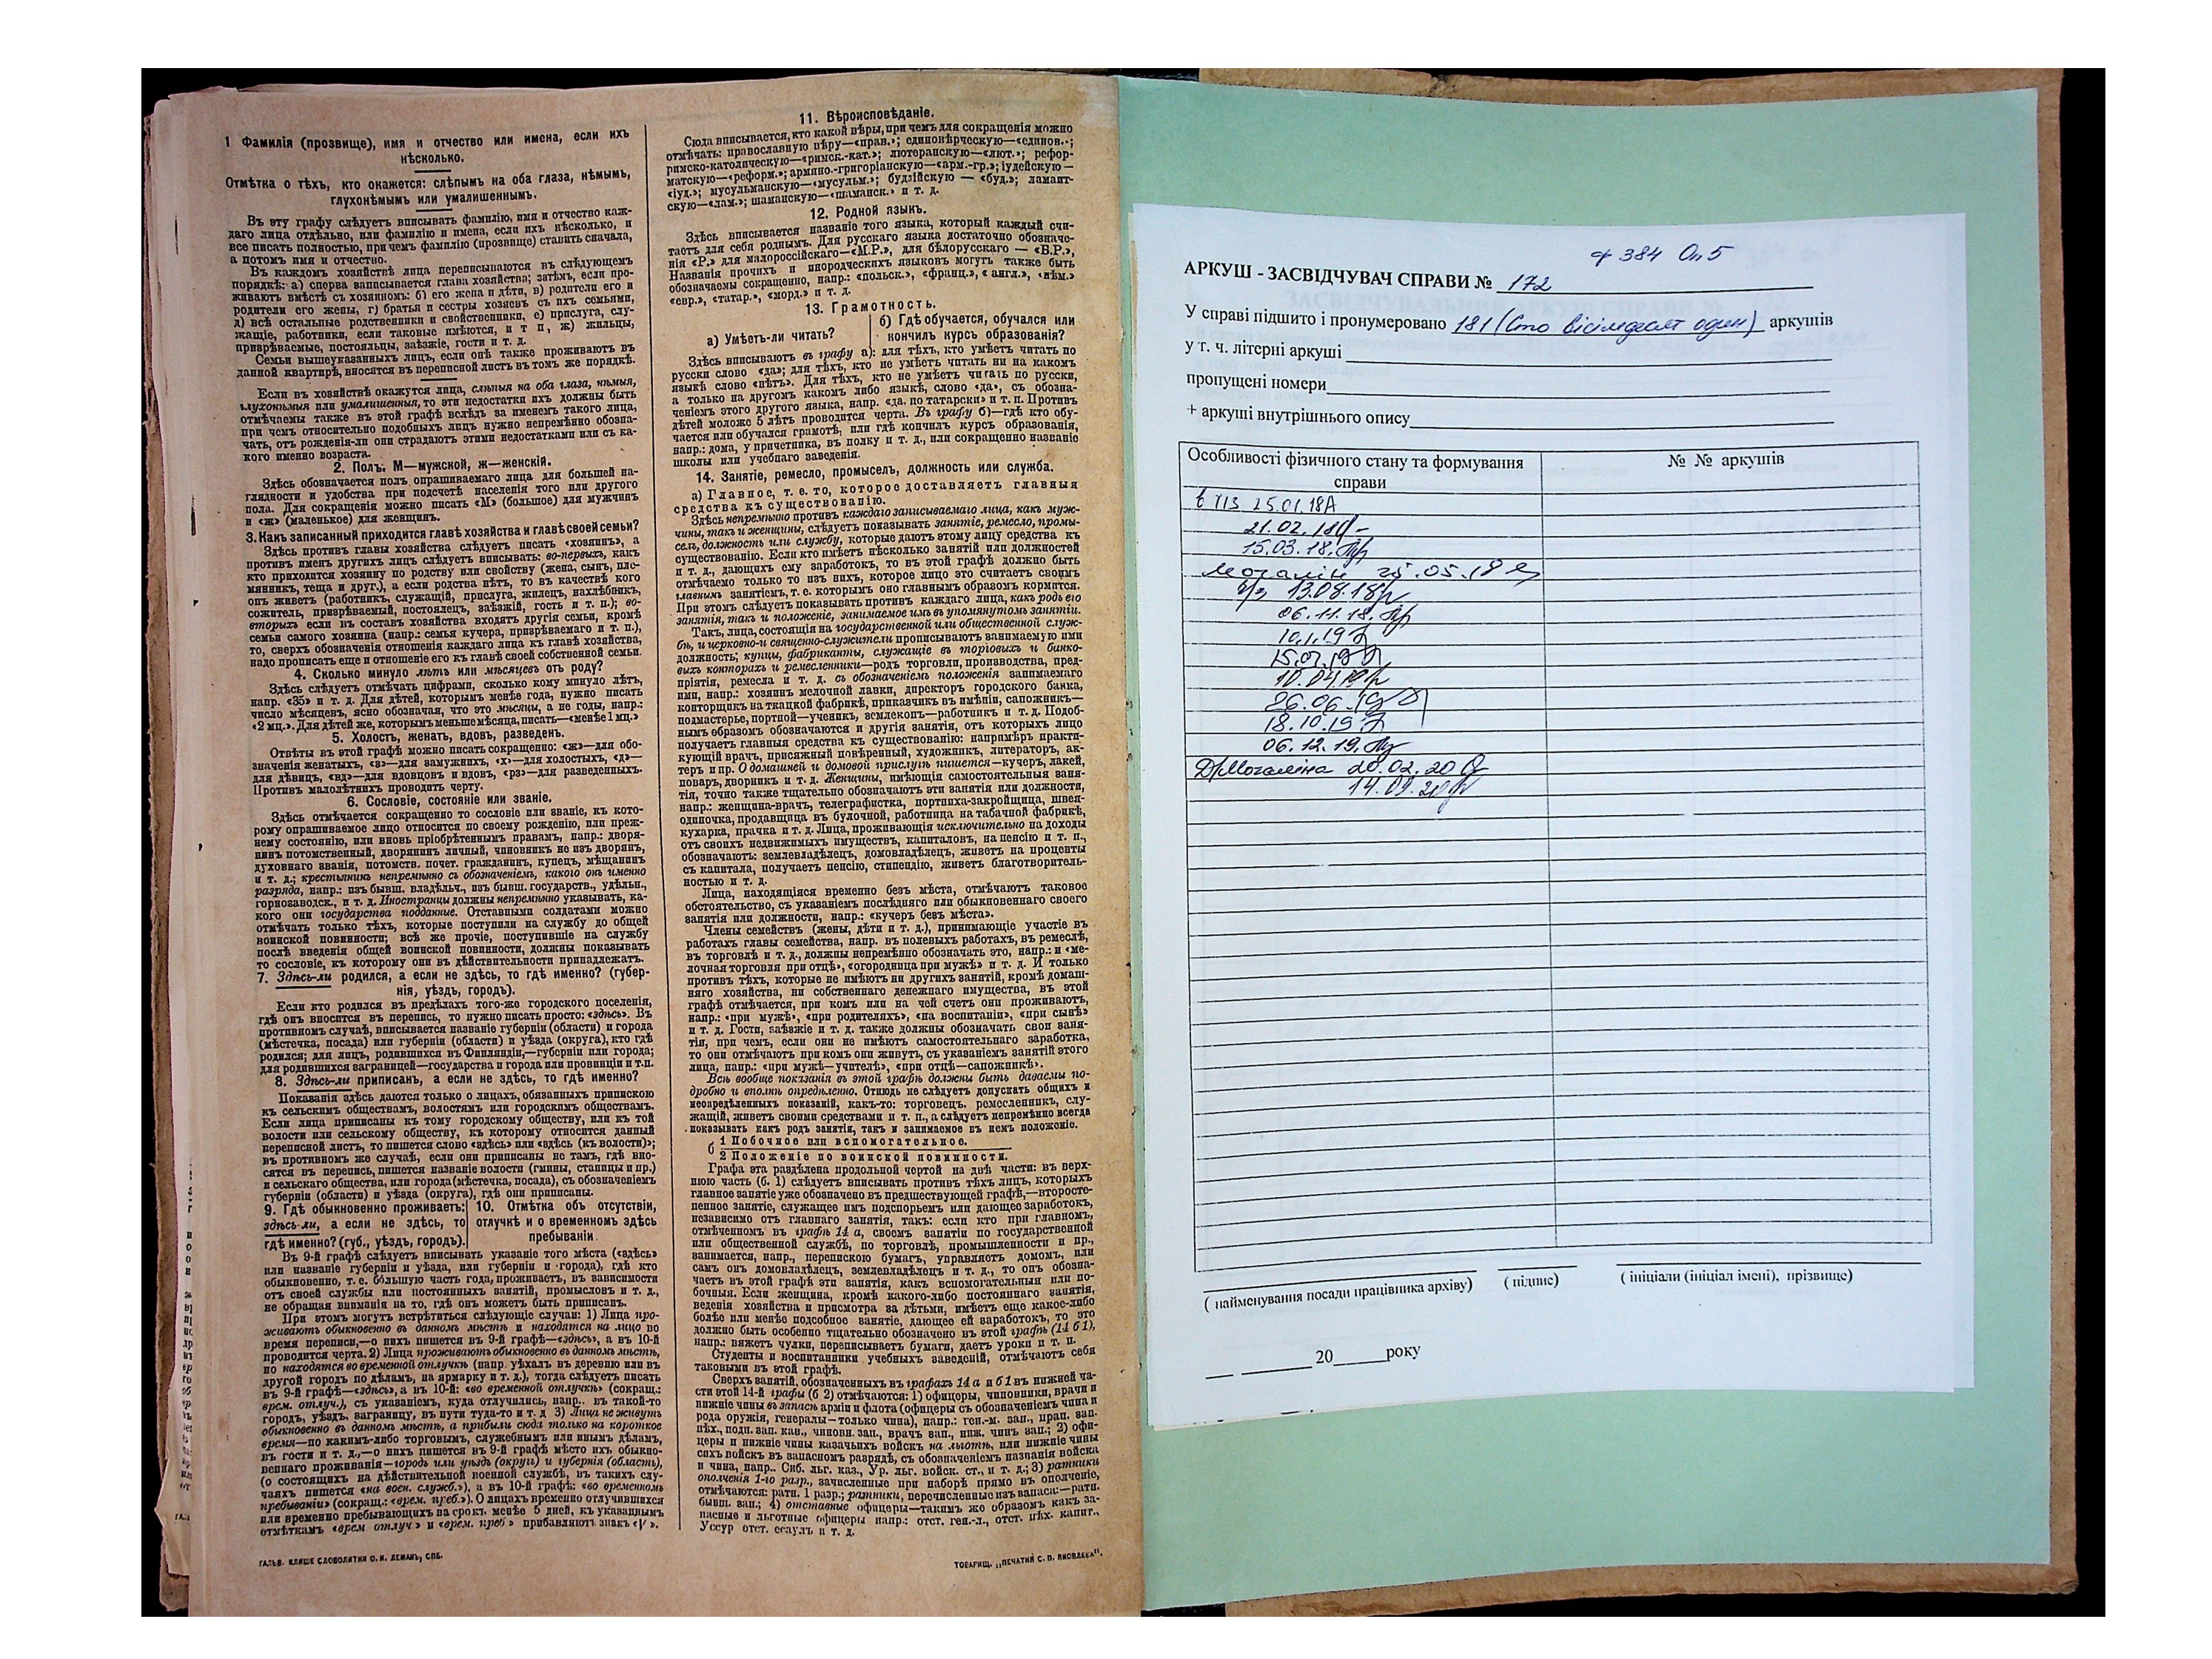 1 Фамилія (прозвище), имя и отчество или имена, если ихъ
нѣсколько.
Отмѣтка о тѣхъ, кто окажется: слѣпымъ на оба глаза, нѣмымъ,
глухонѣмымъ или умалишеннымъ.
Въ эту графу слѣдуетъ вписывать фамилію, имя и отчество каж-
даго лица отдѣльно, или фамилію и имена, если ихъ нѣсколько, и
все писать полностью, при чемъ фамилію (прозвище) ставить сначала,
а потомъ имя и отчество.
Въ каждомъ хозяйствѣ лица переписываются въ слѣдующемъ
порядкѣ: а) сперва записывается глава хозяйства; затѣмъ, если про-
живаютъ вмѣстѣ съ хозяиномъ: б) его жена и дѣти, в) родители его и
родители его жены, г) братья и сестры хозяевъ съ ихъ семьями,
д) всѣ остальные родственники и свойственники, е) прислуга, слу-
жащіе, работники, если таковые имѣются, и т п, ж) жильцы,
призрѣваемые, постояльцы, заѣзжіе, гости и т. д.
Семьи вышеуказанныхъ лицъ, если онѣ также проживаютъ въ
данной квартирѣ, вносятся въ переписной листъ въ томъ же порядкѣ.
Если въ хозяйствѣ окажутся лица, слѣпыя на оба глаза, нѣмыя,
глухонѣмыя или умалишенныя, то эти недостатки ихъ должны быть
отмѣчаемы также въ этой графѣ вслѣдъ за именемъ такого лица,
при чемъ относительно подобныхъ лицъ нужно непремѣнно обозна-
чать, отъ рожденія-ли они страдаютъ этими недостатками или съ ка-
кого именно возраста.
2. Полъ. М—мужской, ж—женскій.
Здѣсь обозначается полъ опрашиваемаго лица для большей на-
глядности и удобства при подсчетѣ населенія того или другого
пола. Для сокращенія можно писать «М» (большое) для мужчинъ
и «ж» (маленькое) для женщинъ.
3. Какъ записанный приходится главѣ хозяйства и главѣ своей семьи?
Здѣсь противъ главы хозяйства слѣдуетъ писать «хозяинъ», а
противъ именъ другихъ лицъ слѣдуетъ вписывать: во-первыхъ, какъ
кто приходится хозяину по родству или свойству (жена, сынъ, пле-
мянникъ, теща и друг.), а если родства нѣтъ, то въ качествѣ кого
онъ живетъ (работникъ, служащій, прислуга, жилецъ, нахлѣбникъ,
сожитель, призрѣваемый, постоялецъ, заѣзжій, гость и т. п.); во-
вторыхъ если въ составъ хозяйства входятъ другія семьи, кромѣ
семьи самого хозяина (напр.: семья кучера, призрѣваемаго и т. п.),
то, сверхъ обозначенія отношенія каждаго лица къ главѣ хозяйства,
надо прописать еще и отношеніе его къ главѣ своей собственной семьи.
4. Сколько минуло лѣтъ или мѣсяцевъ отъ роду?
Здѣсь слѣдуетъ отмѣчать цифрами, сколько кому минуло лѣтъ,
напр. «35» и т. д. Для дѣтей, которымъ менѣе года, нужно писать
число мѣсяцевъ, ясно обозначая, что это мѣсяцы, а не годы, напр.:
«2 мц.». Для дѣтей же, которымъ меньше мѣсяца, писать—«менѣе 1 мц.»
5. Холостъ, женатъ, вдовъ, разведенъ.
Отвѣты въ этой графѣ можно писать сокращенно: «ж»—для обо-
значенія женатыхъ, «з»—для замужнихъ, «х»—для холостыхъ, «д»—
для дѣвицъ, «вд»—для вдовцовъ и вдовъ, «рз»—для разведенныхъ.
Противъ малолѣтнихъ проводить черту.
6. Сословіе, состояніе или званіе.
Здѣсь отмѣчается сокращенно то сословіе или званіе, къ кото-
рому опрашиваемое лицо относится по своему рожденію, или преж-
нему состоянію, или вновь пріобрѣтеннымъ правамъ, напр.: дворя-
нинъ потомственный, дворянинъ личный, чиновникъ не изъ дворянъ,
духовнаго званія, потомств. почет. гражданинъ, купецъ, мѣщанинъ
и т. д.; крестьянинъ непремѣнно съ обозначеніемъ, какого онъ именно
разряда, напр.: изъ бывш. владѣльч., изъ бывш. государств., удѣльн.,
горнозаводск., и т. д. Иностранцы должны непремѣнно указывать, ка-
кого они государства подданные. Отставными солдатами можно
отмѣчать только тѣхъ, которые поступили на службу до общей
воинской повинности; всѣ же прочіе, поступившіе на службу
послѣ введенія общей воинской повинности, должны показывать
то сословіе, къ которому они въ дѣйствительности принадлежатъ.
7. Здѣсь-ли родился, а если не здѣсь, то гдѣ именно? (губер-
нія, уѣздъ, городъ).
Если кто родился въ предѣлахъ того-же городского поселенія,
гдѣ онъ вносится въ перепись, то нужно писать просто: «здѣсь». Въ
противномъ случаѣ, вписывается названіе губерніи (области) и города
(мѣстечка, посада) или губерніи (области) и уѣзда (округа), кто гдѣ
родился; для лицъ, родившихся въ Финляндіи,—губерніи или города;
для родившихся заграницей—государства и города или провинціи и т.п.
8. Здѣсь-ли приписанъ, а если не здѣсь, то гдѣ именно?
Показанія здѣсь даются только о лицахъ, обязанныхъ припискою
къ сельскимъ обществамъ, волостямъ или городскимъ обществамъ.
Если лица приписаны къ тому городскому обществу, или къ той
волости или сельскому обществу, къ которому относится данный
переписной листъ, то пишется слово «здѣсь» или «здѣсь (къ волости)»;
въ противномъ же случаѣ, если они приписаны не тамъ, гдѣ вно-
сятся въ перепись, пишется названіе волости (гмины, станицы и пр.)
и сельскаго общества, или города (мѣстечка, посада), съ обозначеніемъ
губерніи (области) и уѣзда (округа), гдѣ они приписаны.
9. Гдѣ обыкновенно проживаетъ:
здѣсь-ли, а если не здѣсь, то
гдѣ именно? (губ., уѣздъ, городъ).
10. Отмѣтка объ отсутствіи,
отлучкѣ и о временномъ здѣсь
пребываніи.
Въ 9-й графѣ слѣдуетъ вписывать указаніе того мѣста («здѣсь»
или названіе губерніи и уѣзда, или губерніи и города), гдѣ кто
обыкновенно, т. е. большую часть года, проживаетъ, въ зависимости
отъ своей службы или постоянныхъ занятій, промысловъ и т. д.,
не обращая вниманія на то, гдѣ онъ можетъ быть приписанъ.
При этомъ могутъ встрѣтиться слѣдующіе случаи: 1) Лица про-
живаютъ обыкновенно въ данномъ мѣстѣ и находятся на лицо во
время переписи,—о нихъ пишется въ 9-й графѣ—«здѣсь», а въ 10-й
проводится черта. 2) Лица проживаютъ обыкновенно въ данномъ мѣстѣ,
но находятся во временной отлучкѣ (напр. уѣхалъ въ деревню или въ
другой городъ по дѣламъ, на ярмарку и т. д.), тогда слѣдуетъ писать
въ 9-й графѣ—«здѣсь», а въ 10-й: «во временной отлучкѣ» (сокращ.:
врем. отлуч.), съ указаніемъ, куда отлучились, напр.. въ такой-то
городъ, уѣздъ, заграницу, въ пути туда-то и т. д 3) Лица не живутъ
обыкновенно въ данномъ мѣстѣ, а прибыли сюда только на короткое
время—по какимъ-либо торговымъ, служебнымъ или инымъ дѣламъ,
въ гости и т. д.,—о нихъ пишется въ 9-й графѣ мѣсто ихъ обыкно-
веннаго проживанія—городъ или уѣздъ (округъ) и губернія (область),
(о состоящихъ на дѣйствительной военной службѣ, въ такихъ слу-
чаяхъ пишется «на воен. службѣ»), а въ 10-й графѣ: «во временномъ
пребываніи» (сокращ.: «врем. преб.»). О лицахъ временно отлучившихся
или временно пребывающихъ на срокъ менѣе 5 дней, къ указаннымъ
отмѣткамъ «врем отлуч.» и «врем. преб.» прибавляютъ знакъ «|/».
ГАЛЬВ. КЛИШЕ СЛОВОЛИТНИ О. И. ЛЕМАНЪ, СПБ.
11. Вѣроисповѣданіе.
Сюда вписывается, кто какой вѣры, при чемъ для сокращенія можно
отмѣчать: православную вѣру—«прав.»; единовѣрческую—«единов.»;
римско-католическую—«римск.-кат.»; лютеранскую—«лют.»; рефор-
матскую—«реформ.»; армяно.-григоріанскую—«арм.-гр.»; іудейскую—
«іуд.»; мусульманскую—«мусульм.»; буддійскую — «буд.»; ламаит-
скую—«лам.»; шаманскую—«шаманск.» и т. д.
12. Родной языкъ.
Здѣсь вписывается названіе того языка, который каждый счи-
таетъ для себя роднымъ. Для русскаго языка достаточно обозначе-
нія «Р.» для малороссійскаго—«М.Р.», для бѣлорусскаго — «Б.Р.»,
Названія прочихъ и инородческихъ языковъ могутъ также быть
обозначаемы сокращенно, напр.: «польск.», «франц.», «англ.», «нѣм.»
«евр.», «татар.», «морд.» и т. д.
13. Грамотность.
а) Умѣетъ-ли читать?
б) Гдѣ обучается, обучался или
кончилъ курсъ образованія?
Здѣсь вписываютъ въ графу а): для тѣхъ, кто умѣетъ читать по
русски слово «да»; для тѣхъ, кто не умѣетъ читать ни на какомъ
языкѣ слово «нѣтъ». Для тѣхъ, кто не умѣетъ читать по русски,
а только на другомъ какомъ либо языкѣ, слово «да», съ обозна-
ченіемъ этого другого языка, напр. «да, по татарски» и т. п. Противъ
дѣтей моложе 5 лѣтъ проводится черта. Въ графу б)—гдѣ кто обу-
чается или обучался грамотѣ, или гдѣ кончилъ курсъ образованія,
напр.: дома, у причетника, въ полку и т. д., или сокращенно названіе
школы или учебнаго заведенія.
14. Занятіе, ремесло, промыселъ, должность или служба.
а) Главное, т. е. то, которое доставляетъ главныя
средства къ существованію.
Здѣсь непремѣнно противъ каждаго записываемаго лица, какъ муж-
чины, такъ и женщины, слѣдуетъ показывать занятіе, ремесло, промы-
селъ, должность или службу, которые даютъ этому лицу средства къ
существованію. Если кто имѣетъ нѣсколько занятій или должностей
и т. д., дающихъ ему заработокъ, то въ этой графѣ должно быть
отмѣчаемо только то изъ нихъ, которое лицо это считаетъ своимъ
главнымъ занятіемъ, т. е. которымъ оно главнымъ образомъ кормится.
При этомъ слѣдуетъ показывать противъ каждаго лица, какъ родъ его
занятія, такъ и положеніе, занимаемое имъ въ упомянутомъ занятіи.
Такъ, лица, состоящія на государственной или общественной служ-
бѣ, и церковно-и священно-служители прописываютъ занимаемую ими
должность; купцы, фабриканты, служащіе въ торговыхъ и банко-
выхъ конторахъ и ремесленники—родъ торговли, производства, пред-
пріятія, ремесла и т. д. съ обозначеніемъ положенія занимаемаго
ими, напр.: хозяинъ мелочной лавки, директоръ городского банка,
конторщикъ на ткацкой фабрикѣ, приказчикъ въ имѣніи, сапожникъ—
подмастерье, портной—ученикъ, землекопъ—работникъ и т. д. Подоб-
нымъ образомъ обозначаются и другія занятія, отъ которыхъ лицо
получаетъ главныя средства къ существованію: напримѣръ практи-
кующій врачъ, присяжный повѣренный, художникъ, литераторъ, ак-
теръ и пр. О домашней и домовой прислугѣ пишется—кучеръ, лакей,
поваръ, дворникъ и т. д. Женщины, имѣющія самостоятельныя заня-
тія, точно также тщательно обозначаютъ эти занятія или должности,
напр.: женщина-врачъ, телеграфистка, портниха-закройщица, швея-
одиночка, продавщица въ булочной, работница на табачной фабрикѣ,
кухарка, прачка и т. д. Лица, проживающія исключительно на доходы
отъ своихъ недвижимыхъ имуществъ, капиталовъ, на пенсію и т. п.,
обозначаютъ: землевладѣлецъ, домовладѣлецъ, живетъ на проценты
съ капитала, получаетъ пенсію, стипендію, живетъ благотворитель-
ностью и т. д.
Лица, находящіяся временно безъ мѣста, отмѣчаютъ таковое
обстоятельство, съ указаніемъ послѣдняго или обыкновеннаго своего
занятія или должности, напр.: «кучеръ безъ мѣста».
Члены семействъ (жены, дѣти и т. д.), принимающіе участіе въ
работахъ главы семейства, напр. въ полевыхъ работахъ, въ ремеслѣ,
въ торговлѣ и т. д., должны непремѣнно обозначать это, напр.: и «ме-
лочная торговля при отцѣ», «огородница при мужѣ» и т. д. И только
противъ тѣхъ, которые не имѣютъ ни другихъ занятій, кромѣ домаш-
няго хозяйства, ни собственнаго денежнаго имущества, въ этой
графѣ отмѣчается, при комъ или на чей счетъ они проживаютъ,
напр.: «при мужѣ», «при родителяхъ», «на воспитаніи», «при сынѣ»
и т. д. Гости, заѣзжіе и т. д. также должны обозначать свои заня-
тія, при чемъ, если они не имѣютъ самостоятельнаго заработка,
то они отмѣчаютъ при комъ они живутъ, съ указаніемъ занятій этого
лица, напр.: «при мужѣ—учителѣ», «при отцѣ—сапожникѣ».
Всѣ вообще показанія въ этой графѣ должны быть даваемы по-
дробно и вполнѣ опредѣленно. Отнюдь не слѣдуетъ допускать общихъ и
неопредѣленныхъ показаній, какъ-то: торговецъ. ремесленникъ, слу-
жащій, живетъ своими средствами и т. п., а слѣдуетъ непремѣнно всегда
показывать какъ родъ занятія, такъ и занимаемое въ немъ положеніе.
б 1 Побочное или вспомогательное.
2 Положеніе по воинской повинности.
Графа эта раздѣлена продольной чертой на двѣ части: въ верх-
нюю часть (б. 1) слѣдуетъ вписывать противъ тѣхъ лицъ, которыхъ
главное занятіе уже обозначено въ предшествующей графѣ,—второсте-
пенное занятіе, служащее имъ подспорьемъ или дающее заработокъ,
независимо отъ главнаго занятія, такъ: если кто при главномъ,
отмѣченномъ въ графѣ 14 а, своемъ занятіи по государственной
или общественной службѣ, по торговлѣ, промышленности и пр.,
занимается, напр., перепиской бумагъ, управляетъ домомъ, или
самъ онъ домовладѣлецъ, землевладѣлецъ и т. д., то онъ обозна-
чаетъ въ этой графѣ эти занятія, какъ вспомогательныя или по-
бочныя. Если женщина, кромѣ какого-либо постояннаго занятія,
веденія хозяйства и присмотра за дѣтьми, имѣетъ еще какое-либо
болѣе или менѣе подсобное занятіе, дающее ей заработокъ, то это
должно быть особенно тщательно обозначено въ этой графѣ (14 б 1),
напр.: вяжетъ чулки, переписываетъ бумаги, даетъ уроки и т. п.
Студенты и воспитанники учебныхъ заведеній, отмѣчаютъ себя
таковыми въ этой графѣ.
Сверхъ занятій, обозначенныхъ въ графахъ 14 а и б 1 въ нижней ча-
сти этой 14-й графы (б 2) отмѣчаются: 1) офицеры, чиновники, врачи и
нижніе чины въ запасѣ арміи и флота (офицеры съ обозначеніемъ чина и
рода оружія, генералы—только чина), напр.: ген.-м. зап., прап. зап.
пѣх., подп. зап. кав., чиновн. зап., врачъ зап., ниж. чинъ зап.; 2) офи-
церы и нижніе чины казачьихъ войскъ на льготѣ, или нижніе чины
сихъ войскъ въ запасномъ разрядѣ, съ обозначеніемъ названія войска
и чина, напр.. Сиб. льг. каз., Ур. льг. войск. ст., и т. д.; 3) ратники
ополченія 1-го разр., зачисленные при наборѣ прямо въ ополченіе,
отмѣчаются: ратн. 1 разр.; ратники, перечисленные изъ запаса:—ратн.
бывш. зап.; 4) отставные офицеры—такимъ же образомъ какъ за-
пасные и льготные офицеры напр.: отст. ген.-л., отст. пѣх. капит.,
Уссур отст. есаулъ и т. д.
ТОВАРИЩ. „ПЕЧАТНЯ С. П. ЯКОВЛЕВА“.
ф 384 Оп 5
АРКУШ - ЗАСВІДЧУВАЧ СПРАВИ № 172
У справі підшито і пронумеровано 181 (Сто вісімдесят один) аркушів
у т. ч. літерні аркуші
пропущені номери
+ аркуші внутрішнього опису
Особливості фізичного стану та формування
справи
№ № аркушів
25.01.18
21.02.18
15.03.18.
25.05.18
13.08.18
06.11.18.
10.1.19
15.02.19
10.04.19
26.06.19
18.10.19
06.12.19.
Мочаліна 20.02.20
14.09.20
( найменування посади працівника архіву)
( підпис)
( ініціали (ініціал імені), прізвище)
20 року